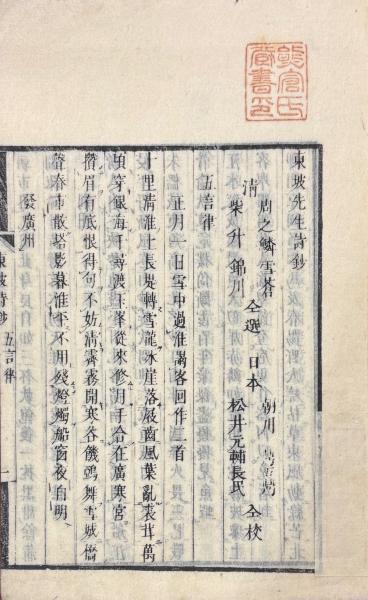 東坡先生詩鈔
清 周之鱗雪蒼
柴升錦川 仝選 日本 朝川
松井元輔長民 仝校
五言律
正月一日雪中過淮謁客回作二首
十里清淮上長堤轉雪龍冰崖落屐齒風葉亂裘茸萬
頃穿銀海千尋渡玉峰從來修月手合在廣寒宮
攢眉有底恨得句不妨清霽霧開寒谷饑鴉舞雪城橋
聲春市散塔影暮淮平不用殘燈燭船窗夜自明
發廣州
東坡詩鈔 五言律 一